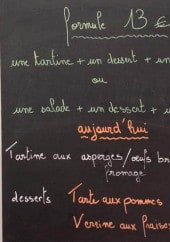 formule 13 €
une tartine + un dessert + un
ou
une salade + un dessert + u
aujourd'hui
Tartine aux asperges/œufs br
fromage
desserts Tarte aux pommes
Verrine aux fraises